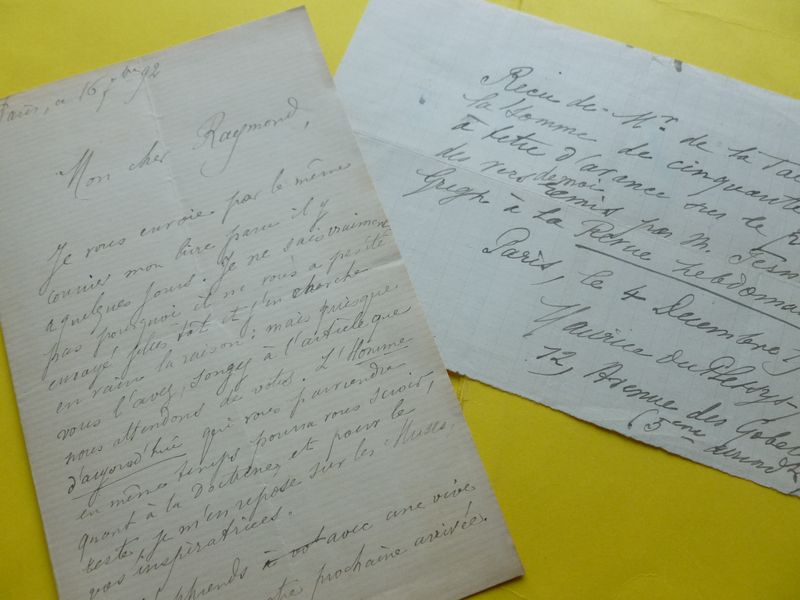 Paris, ce 16 9bre 92
Mon cher Raymond,
Je vous envoie par le même
courrier mon livre paru il y
a quelques jours. Je ne sais vraiment
pas pourquoi il ne vous a pas été
envoyé plus tôt et j'en cherche
en vain la raison : mais puisque
vous l'avez, songez à l'article que
nous attendons de vous. L'Homme
d'aujourd'hui qui vous parviendra
en même temps pourra vous servir,
quant à la Doctrine, et pour le
reste, je m'en repose sur les Muses,
vos inspiratrices.
avec une vive
prochaine arrivée.
Reçu de Mr de la Tai
la somme de cinquante
à titre d'avance sur le
des vers remis par M. Fern
demoi
Gregh à la Revue hebdoma
Paris, le 4 Décembre
Maurice du Plessys
12, Avenue des Gobel
(5ème arrondt